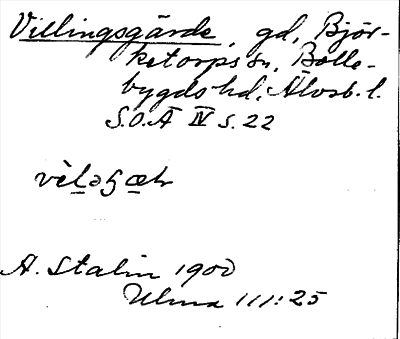 Villingsgärde, gd, Björ-
ketorps sn, Bolle-
bygds hd, Älvsb. l.
S.O.Ä IV S. 22
A. Stalin 1900
Ulma 111:25